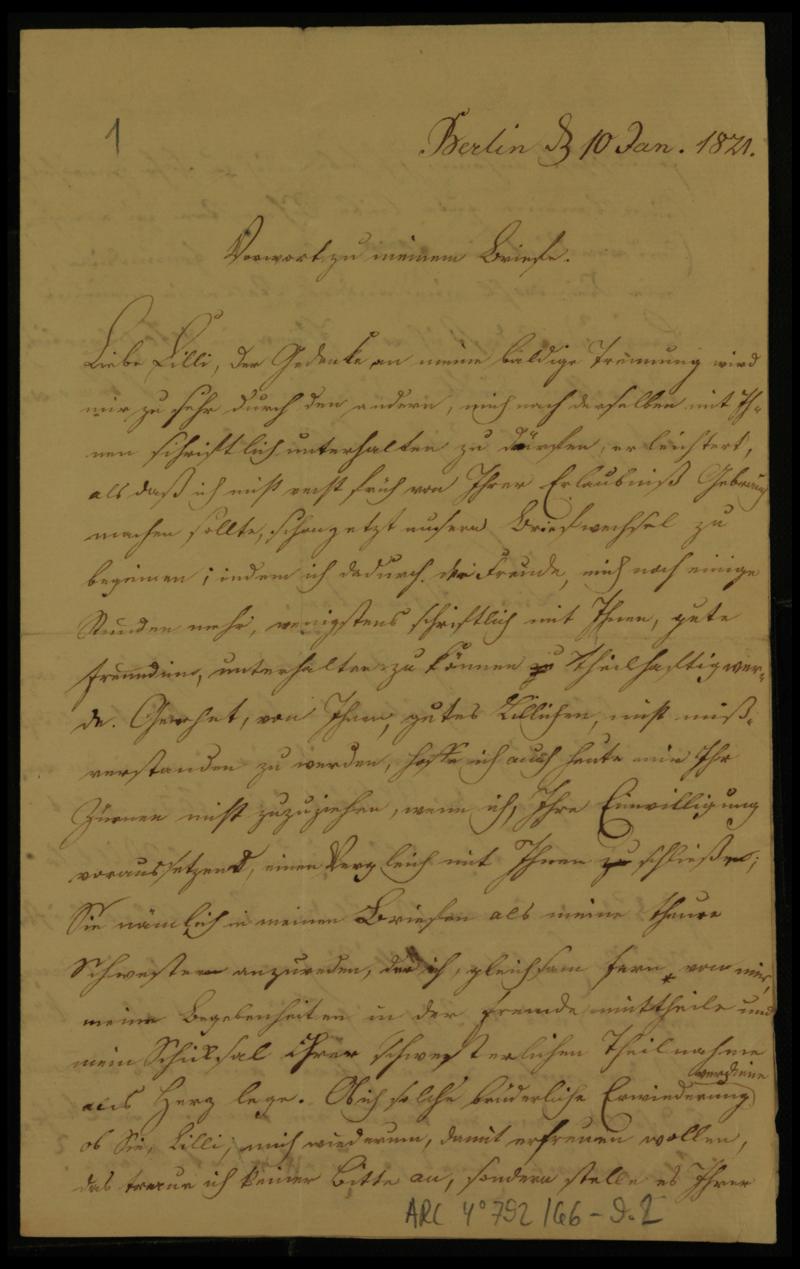 1
Berlin d 10 Jan. 1821.
Vorwort zu meinem Briefe.
Liebe Lilli, der Gedanke an meine baldige Trennung wird
mir zu sehr durch den andern, mich nach derselben mit Ih-
nen schriftlich unterhalten zu dürfen, erleichtert,
als daß ich nicht recht früh von Ihrer Erlaubniß Gebrauch
machen sollte, schon jetzt unsern Briefwechsel zu
beginnen; indem ich dadurch der Freude, mich noch einige
Stunden mehr, wenigstens schriftlich mit Ihnen, gute
Freundinn, unterhalten zu können theilhaftig wer-
de. Gewohnt, von Ihnen, gutes Lillichen, nicht miß-
verstanden zu werden, hoffe ich auch heute mir Ihr
Zürnen nicht zuzuziehen, wenn ich, Ihre Einwilligung
voraussetzend, einen Vergleich mit Ihnen schließe;
Sie nämlich in meinen Briefen als meine theure
Schwester anzureden, der ich, gleichsam fern von mir,
meine Begebenheiten in der Fremde mittheile und
mein Schiksal Ihrer schwesterlichen Theilnahme
ans Herz lege. Ob ich solche brüderliche Erwiederung verdiene
ob Sie, Lilli, mich wiederum, damit erfreuen wollen,
das traue ich keiner Bitte an, sondern stelle es Ihrer
ARC 4° 792 /G6-